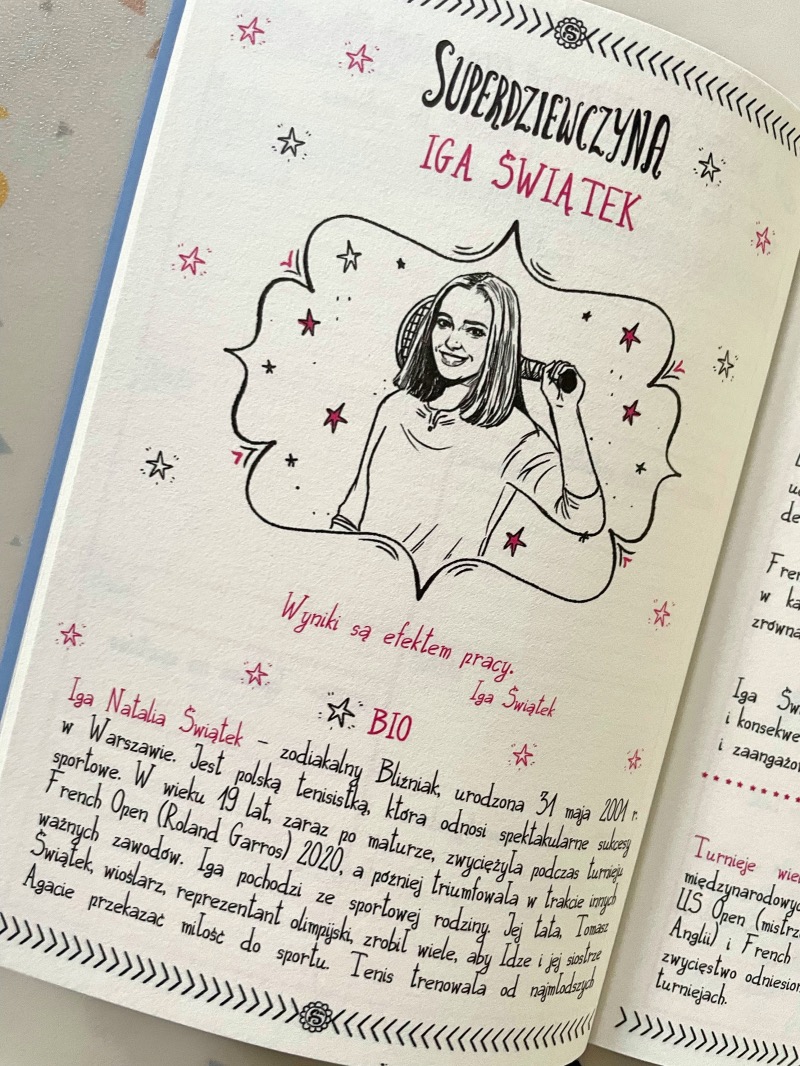 SUPERDZIEWCZYNA
IGA ŚWIĄTEK
Wyniki są efektem pracy.
Iga Świątek
BIO
Iga Natalia Świątek – zodiakalny Bliźniak, urodzona 31 maja 2001 r.
w Warszawie. Jest polską tenisistką, która odnosi spektakularne sukcesy
sportowe. W wieku 19 lat, zaraz po maturze, zwyciężyła podczas turnieju
French Open (Roland Garros) 2020, a później triumfowała w trakcie innych
ważnych zawodów. Iga pochodzi ze sportowej rodziny. Jej tata, Tomasz
Świątek, wioślarz, reprezentant olimpijski, zrobił wiele, aby Idze i jej siostrze
Agacie przekazać miłość do sportu. Tenis trenowała od najmłodszych
w
Iga
i
i
Turnieje
międzynarodowych
US Open
Anglii) i French
zwycięstwo
turniejach.